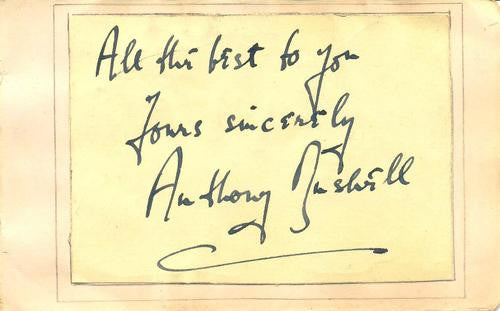 All the best to you
Yours sincerely
Anthony Bushell